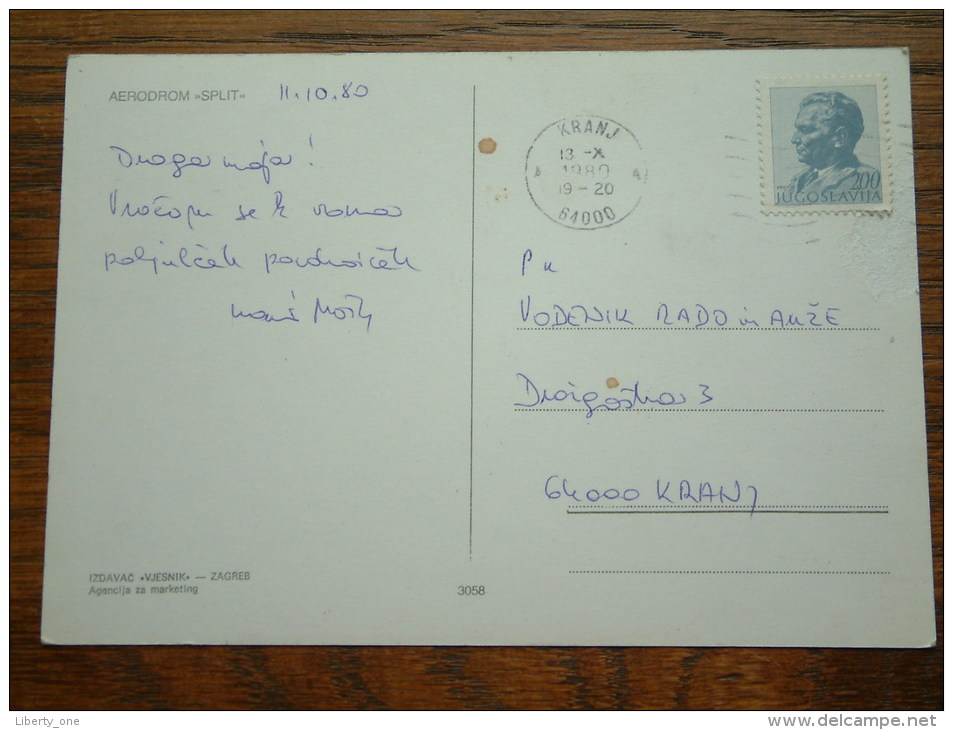 AERODROM »SPLIT« 11.10.80
Draga moja!
Vračam se k vama
poljubček
vaš
KRANJ
13 -X
1980
19 - 20
64000
2.00
JUGOSLAVIJA
VODENIK RADO in ANŽE
Dražgoška 3
64000 KRANJ
IZDAVAČ «VJESNIK» — ZAGREB
Agencija za marketing
3058
Liberty_one
www.delcampe.net